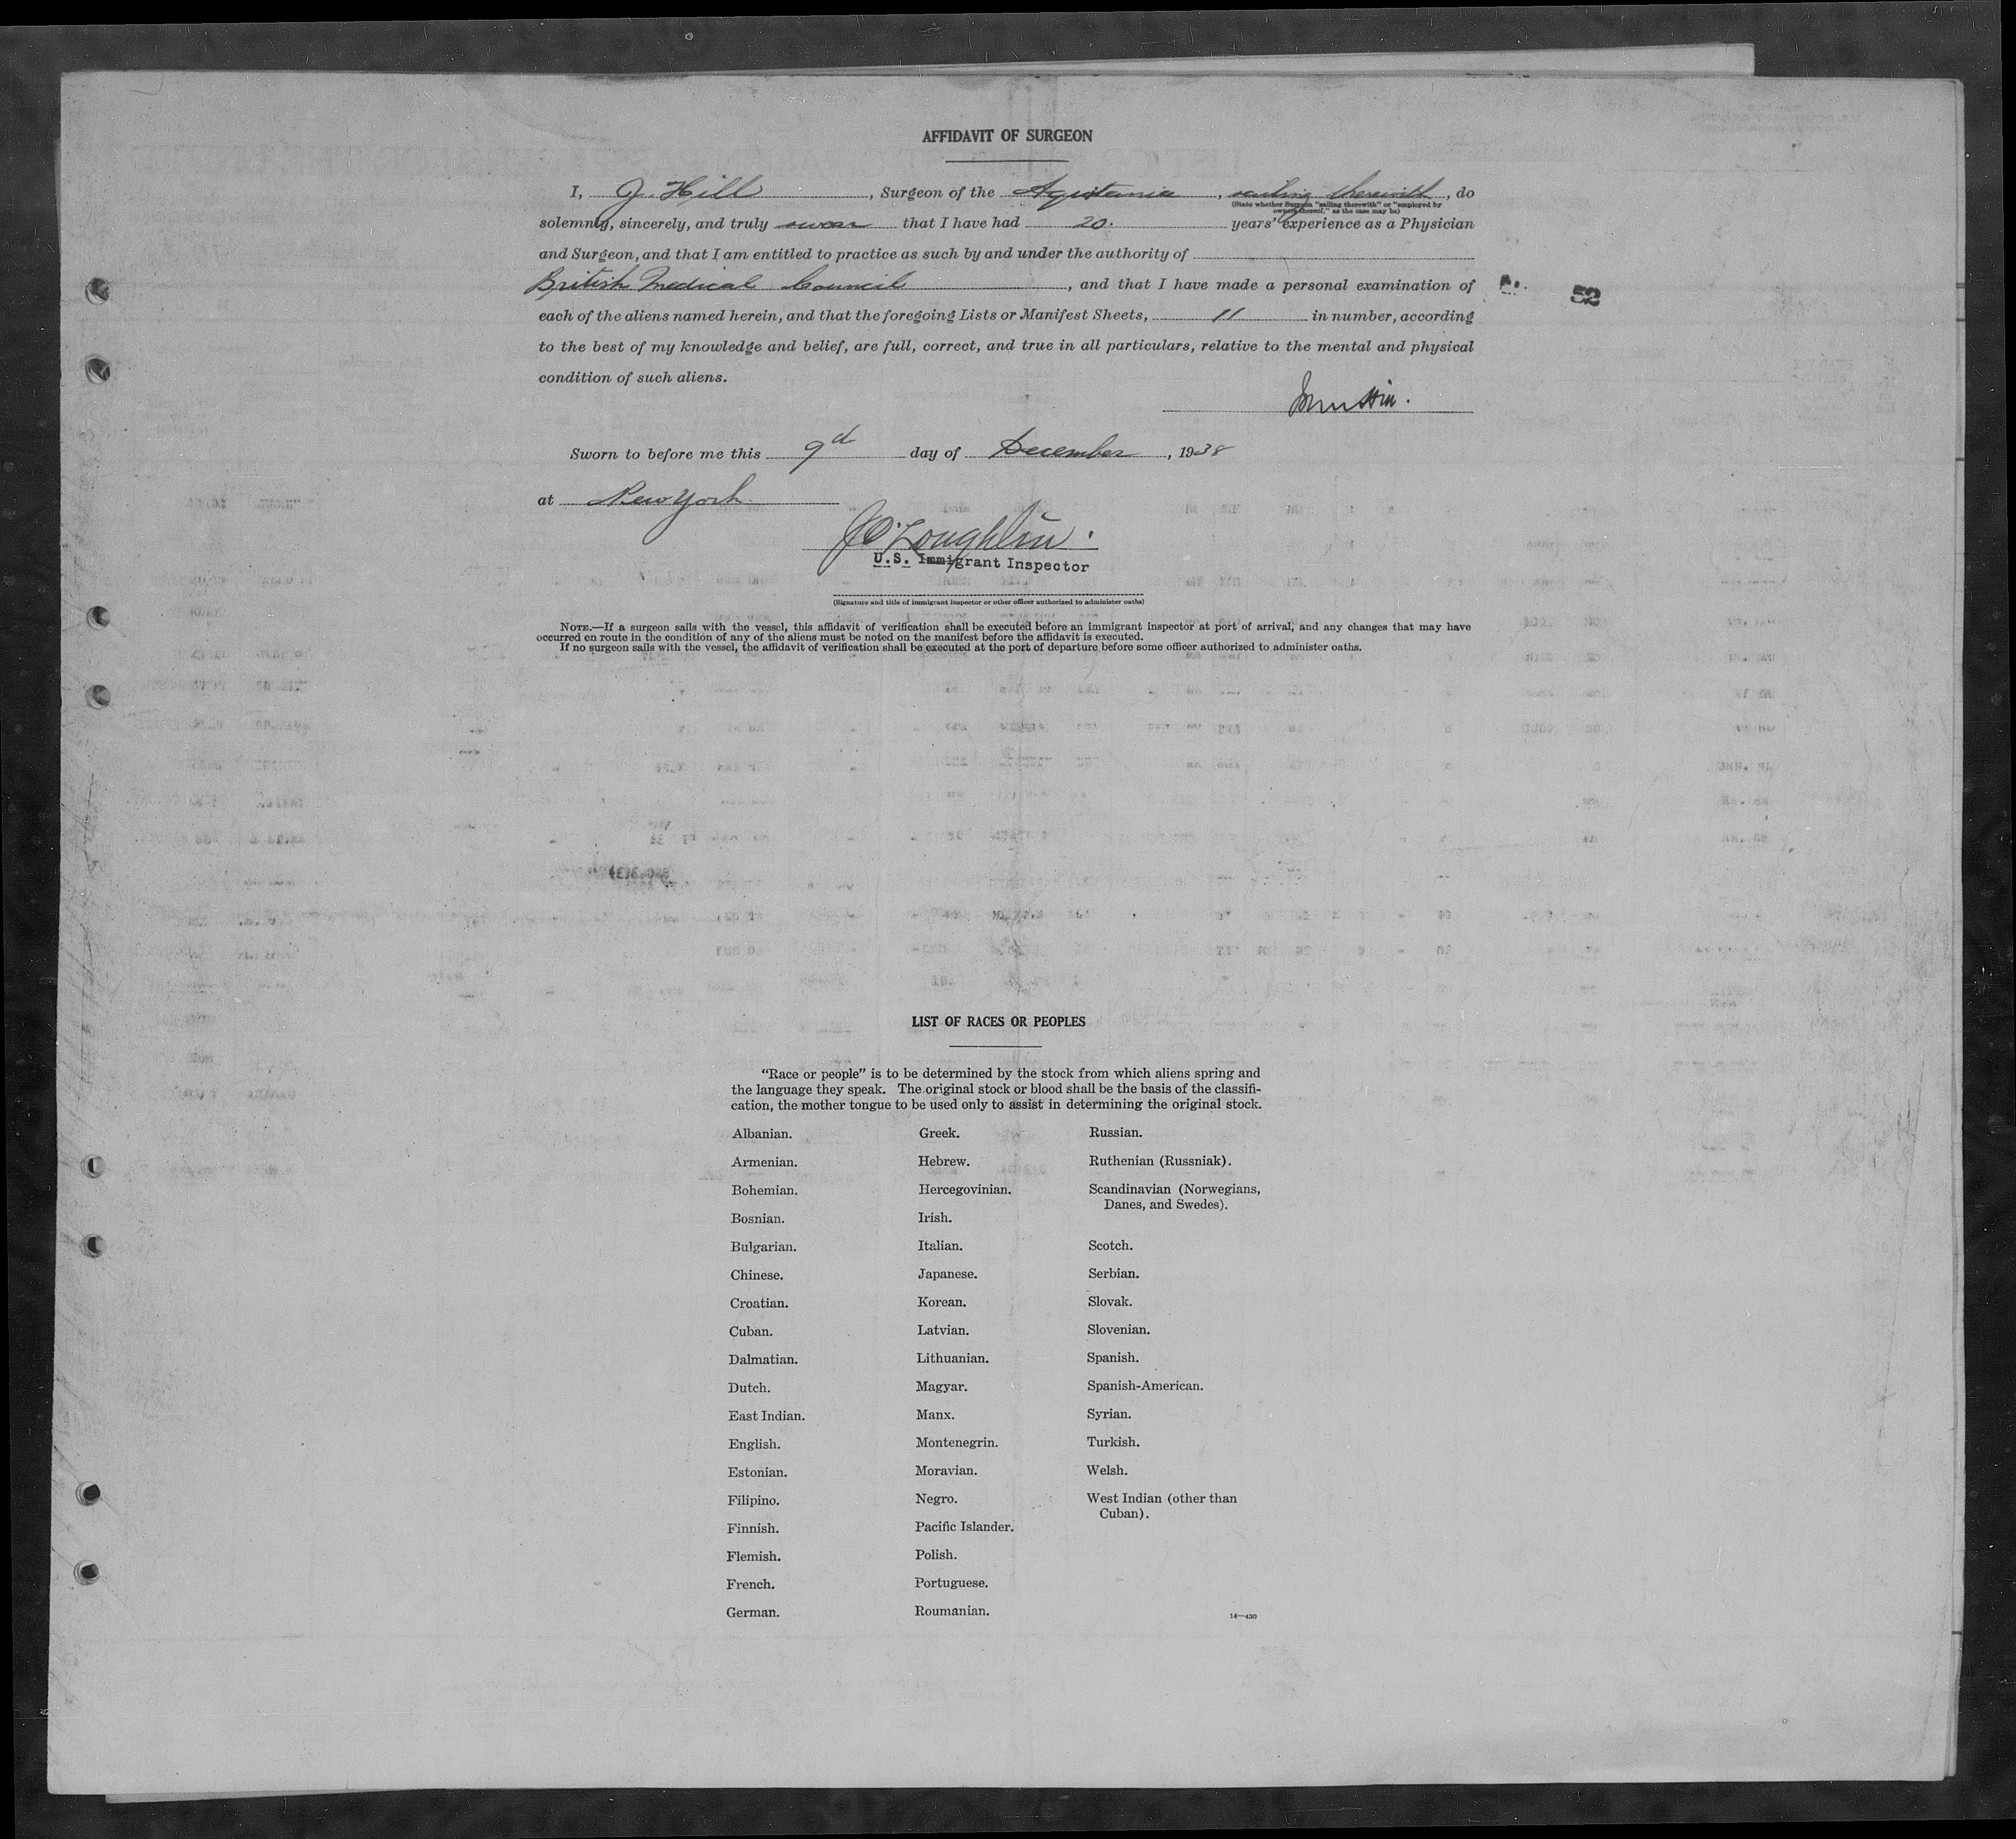 AFFIDAVIT OF SURGEON
I, J. Hill, Surgeon of the Aquitania, sailing therewith, do
(State whether Surgeon "sailing therewith" or "employed by
owners thereof," as the case may be)
solemnly, sincerely, and truly swear that I have had 20. years' experience as a Physician
and Surgeon, and that I am entitled to practice as such by and under the authority of
British Medical Council, and that I have made a personal examination of
52
each of the aliens named herein, and that the foregoing Lists or Manifest Sheets, 11 in number, according
to the best of my knowledge and belief, are full, correct, and true in all particulars, relative to the mental and physical
condition of such aliens.
Sworn to before me this 9d day of December, 1938
at New York
J O'Loughlin.
U.S. Immigrant Inspector
(Signature and title of immigrant inspector or other officer authorized to administer oaths)
NOTE.—If a surgeon sails with the vessel, this affidavit of verification shall be executed before an immigrant inspector at port of arrival, and any changes that may have
occurred en route in the condition of any of the aliens must be noted on the manifest before the affidavit is executed.
If no surgeon sails with the vessel, the affidavit of verification shall be executed at the port of departure before some officer authorized to administer oaths.
LIST OF RACES OR PEOPLES
"Race or people" is to be determined by the stock from which aliens spring and
the language they speak. The original stock or blood shall be the basis of the classifi-
cation, the mother tongue to be used only to assist in determining the original stock.
Albanian.
Armenian.
Bohemian.
Bosnian.
Bulgarian.
Chinese.
Croatian.
Cuban.
Dalmatian.
Dutch.
East Indian.
English.
Estonian.
Filipino.
Finnish.
Flemish.
French.
German.
Greek.
Hebrew.
Hercegovinian.
Irish.
Italian.
Japanese.
Korean.
Latvian.
Lithuanian.
Magyar.
Manx.
Montenegrin.
Moravian.
Negro.
Pacific Islander.
Polish.
Portuguese.
Roumanian.
Russian.
Ruthenian (Russniak).
Scandinavian (Norwegians,
Danes, and Swedes).
Scotch.
Serbian.
Slovak.
Slovenian.
Spanish.
Spanish-American.
Syrian.
Turkish.
Welsh.
West Indian (other than
Cuban).
14—430